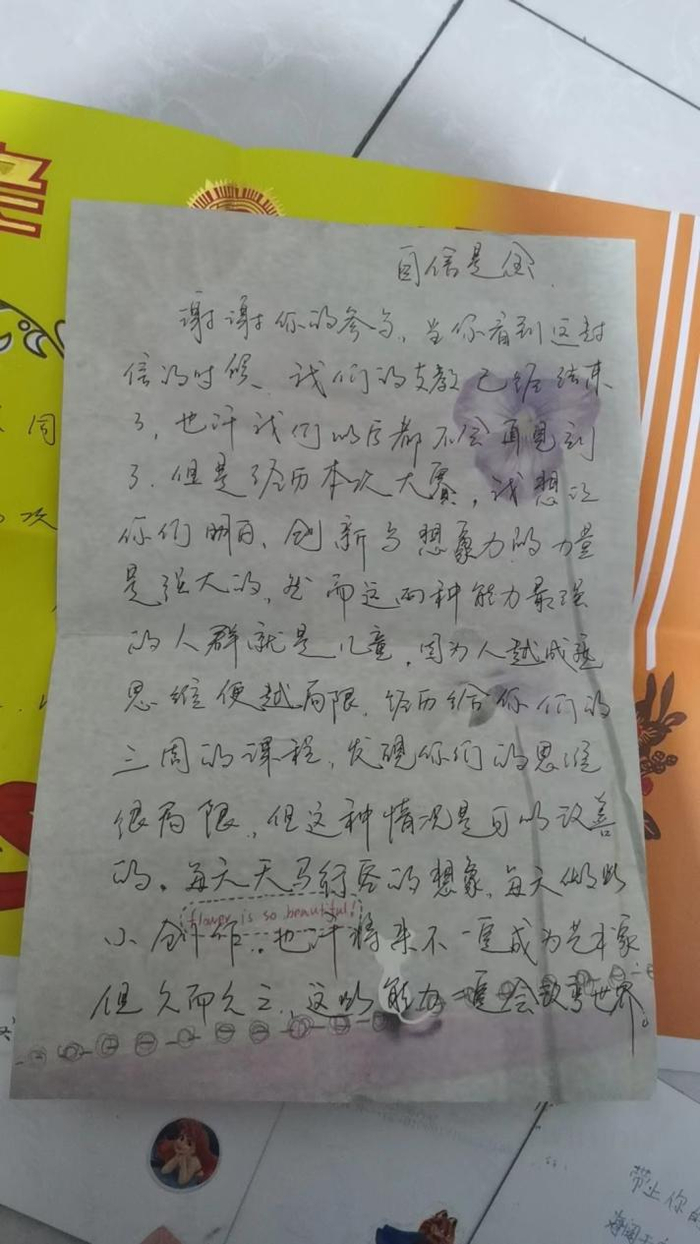 自信是金.
谢谢你的参与，当你看到这封
信的时候，我们的支教已经结束
了，也许我们以后都不会再见到
了。但是经历本次大赛，我想让
你们明白，创新与想象力的力量
是强大的，然而这两种能力最强
的人群就是儿童，因为人越成熟
思维便越局限，经历给你们的
三周的课程，发现你们的思维
很局限，但这种情况是可以改善
的。每天天马行空的想象，每天做些
flower is so beautiful!
小创作..也许将来不一定成为艺术家
但久而久之，这些能力一定会改变世界。
同
次
带上你的